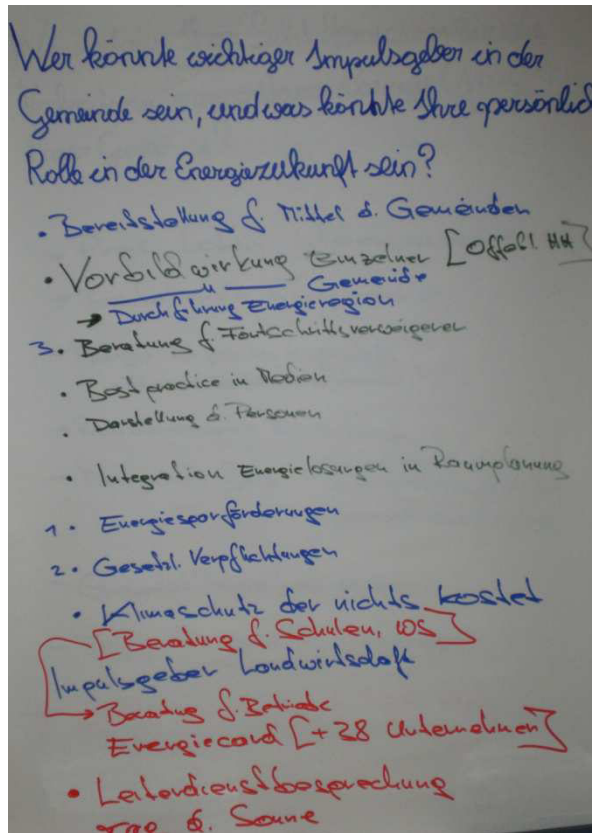 Wer könnte wichtiger Impulsgeber in der
Gemeinde sein, und was könnte Ihre persönlich
Rolle in der Energiezukunft sein?
• Bereitstellung f. Mittel d. Gemeinden
• Vorbildwirkung Einzelner [Öffentl. HH]
—— " —— Gemeinde
→ Durchführung Energieregion
3. Beratung f. Fortschrittsverweigerer
• Best practice in Medien
• Darstellung d. Personen
• Integration Energielösungen in Raumplanung
1. • Energiesparförderungen
2. • Gesetzl. Verpflichtungen
• Klimaschutz der nichts kostet
[Beratung f. Schulen, WS]
Impulsgeber Landwirtschaft
→ Beratung f. Betriebe
Energiecard [+28 Unternehmen]
• Leiterdienstbesprechung
Tag d. Sonne